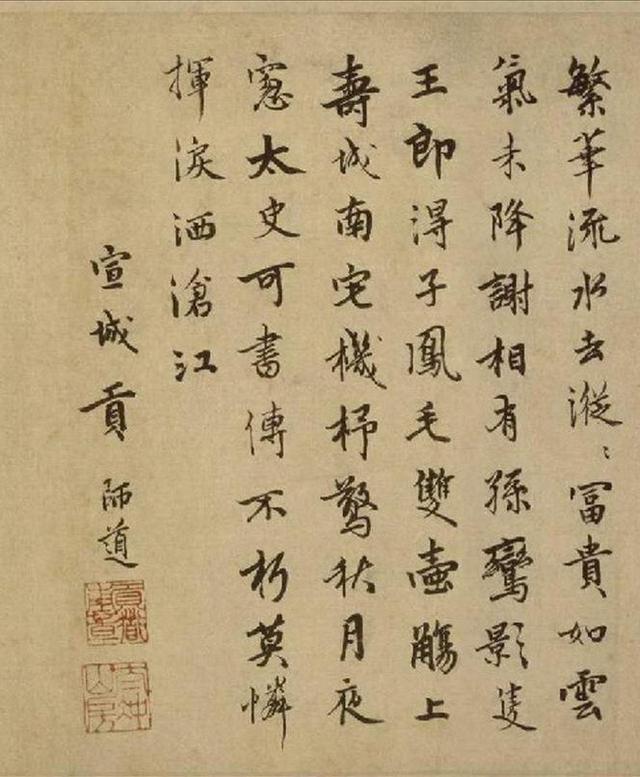 繁華流水去漎〻富貴如雲
氣未降謝相有孫鸞影隻
王郎淂子鳳毛雙壷觴上
壽城南宅機杼驚秋月夜
窓太史可書傳不朽莫憐
揮淚洒滄江
宣城貢師道